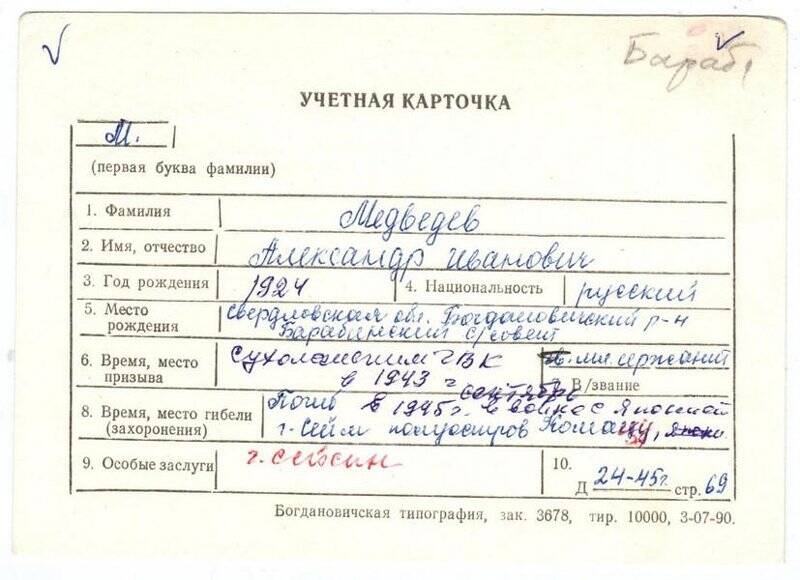 Бараб
УЧЕТНАЯ КАРТОЧКА
М.
(первая буква фамилии)
1. Фамилия Медведев
2. Имя, отчество Александр Иванович
3. Год рождения 1924 4. Национальность русский
5. Место рождения Свердловская обл. Богдановичский р-н
Барабинский с/совет
6. Время, место призыва Сухоложским ГВК
в 1943 г
мл. сержант
7. В/звание
сентябрь
8. Время, место гибели (захоронения) Погиб в 1945 г. в войне с Японией
г. Сейм полуостров
9. Особые заслуги г. Сейсин
10. Д 24-45г. стр. 69
Богдановичская типография, зак. 3678, тир. 10000, 3-07-90.